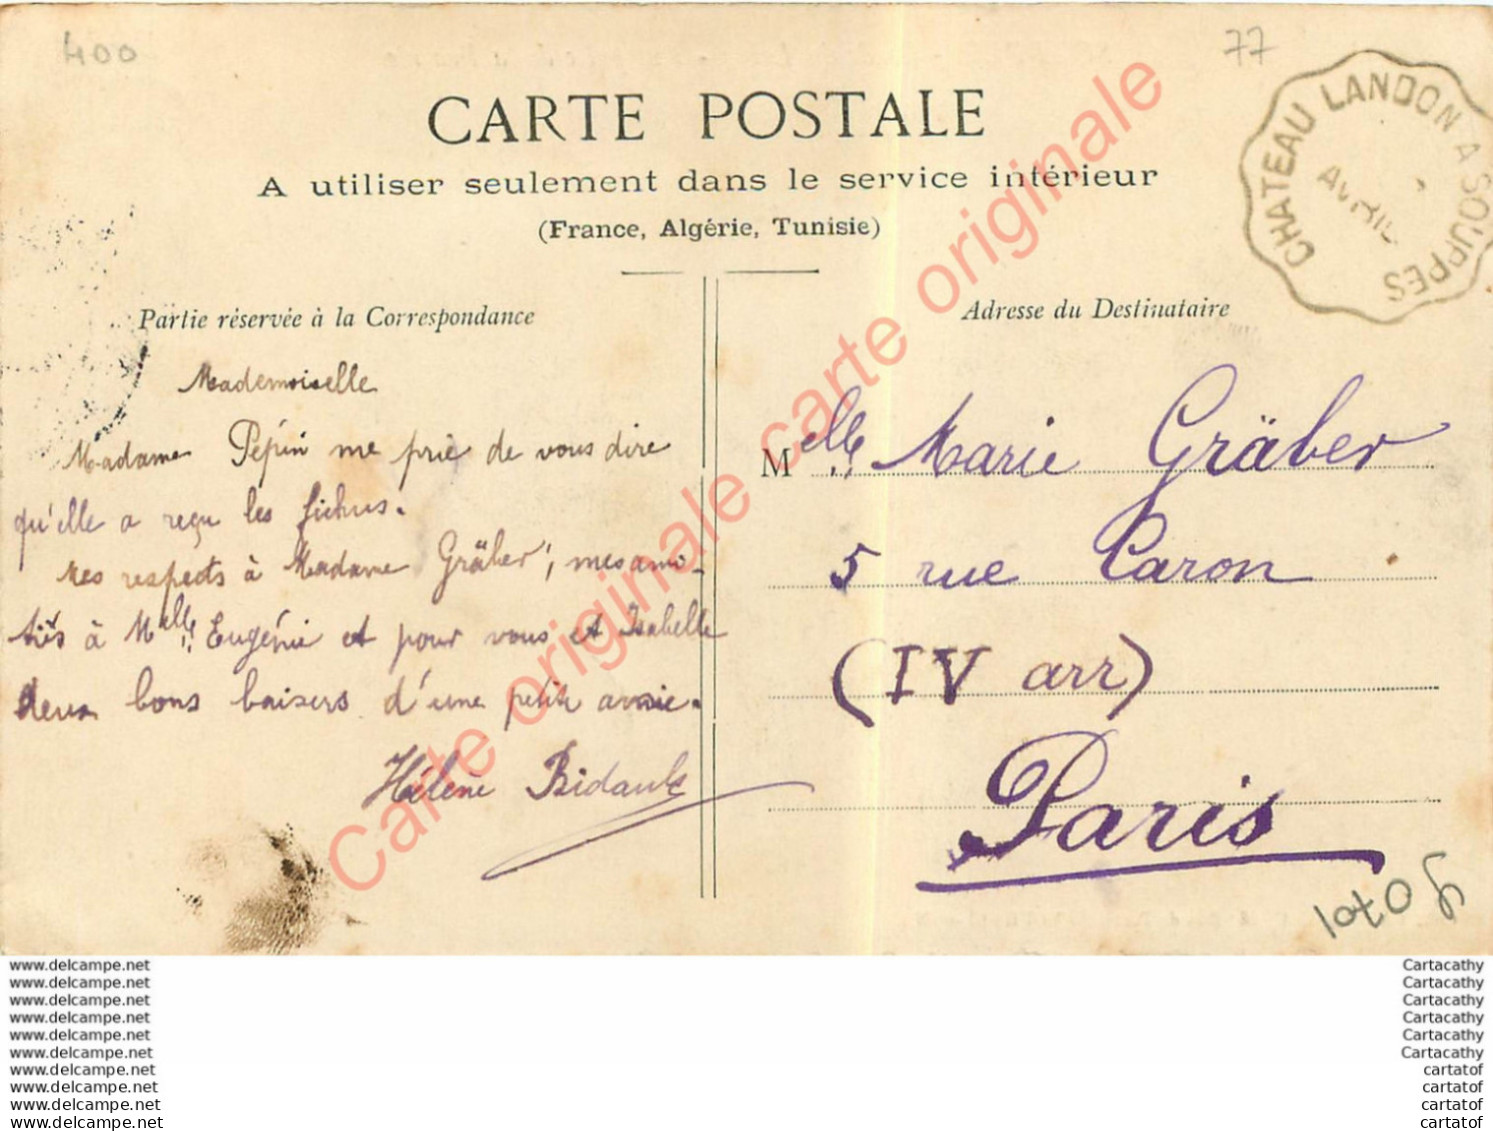 400
77
CARTE POSTALE
A utiliser seulement dans le service intérieur
(France, Algérie, Tunisie)
CHATEAU LANDON A SOUPPES
AVRIL
Partie réservée à la Correspondance
Mademoiselle
Madame Pépin me prie de vous dire
qu'elle a reçu les fichus.
Mes respects à Madame Gräber, mes ami-
tiés à Melle Eugénie et pour vous et Isabelle
deux bons baisers d'une petite amie.
Hélène Bidault
Adresse du Destinataire
Melle Marie Gräber
5 rue Caron
(IV arr)
Paris
Carte originale carte originale
www.delcampe.net
www.delcampe.net
www.delcampe.net
www.delcampe.net
www.delcampe.net
www.delcampe.net
www.delcampe.net
www.delcampe.net
www.delcampe.net
www.delcampe.net
Cartacathy
Cartacathy
Cartacathy
Cartacathy
Cartacathy
Cartacathy
cartatof
cartatof
cartatof
cartatof